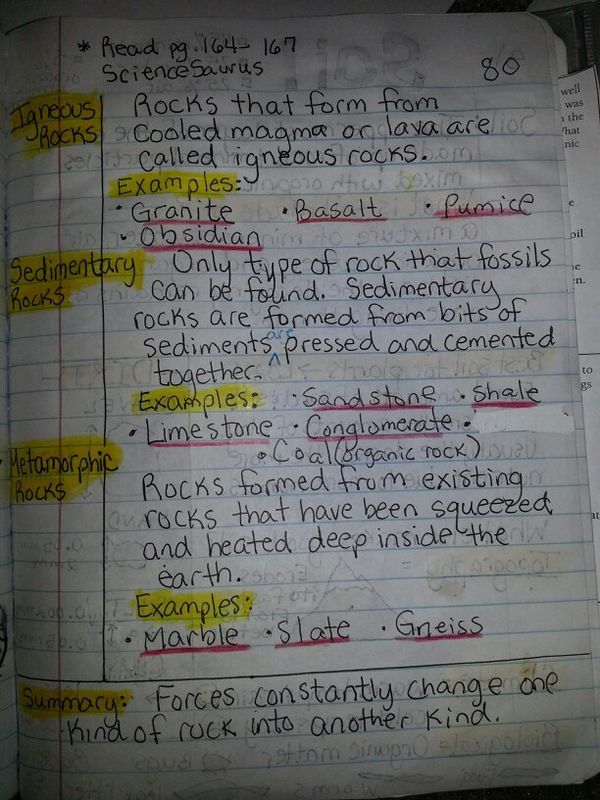 * Read pg. 164-167
ScienceSaurus
80
Igneous Rocks
Rocks that form from
cooled magma or lava are
called igneous rocks.
Examples:
· Granite · Basalt · Pumice
· Obsidian
Sedimentary Rocks
Only type of rock that fossils
can be found. Sedimentary
rocks are formed from bits of
sediments are pressed and cemented
together.
Examples: · Sandstone · Shale
· Limestone · Conglomerate ·
· Coal (organic rock)
Metamorphic Rocks
Rocks formed from existing
rocks that have been squeezed
and heated deep inside the
earth.
Examples:
· Marble · Slate · Gneiss
Summary: Forces constantly change one
kind of rock into another kind.
well
was
n the
What
nic
e
oil
ne
en.
to
gs
at